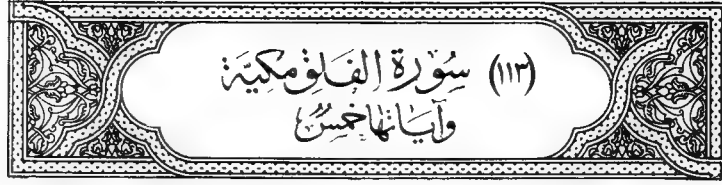 (١١٣) سُورَة الفَلَق مَكِيَّة
وَآيَاتهَا خَمْسٌ